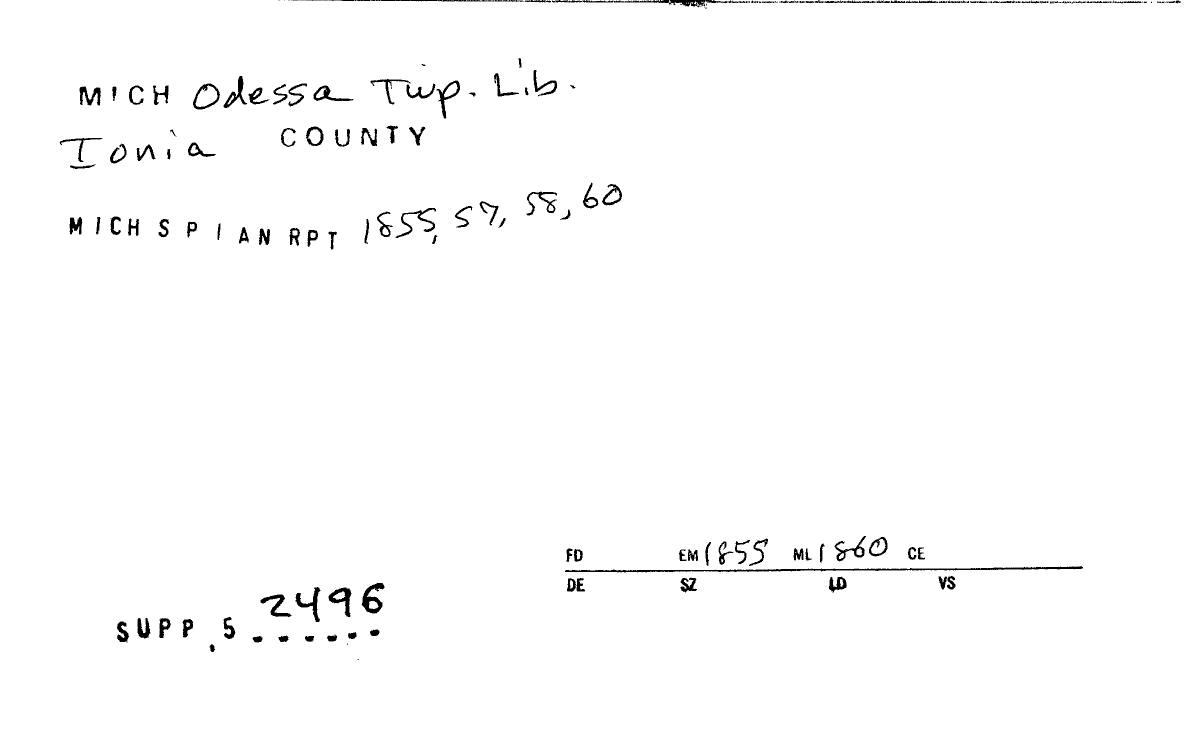 MICH Odessa Twp. Lib.
Ionia COUNTY
MICH S P I AN RPT 1855, 57, 58, 60
FD EM 1855 ML 1860 CE
DE SZ LD VS
SUPP.5 2496